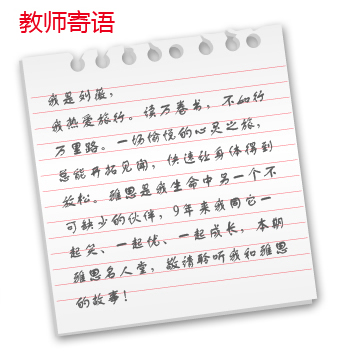 教师寄语
我是刘薇，
我热爱旅行。读万卷书，不如行
万里路。一场愉悦的心灵之旅，
总能开拓见闻，快速让身体得到
放松。雅思是我生命中另一个不
可缺少的伙伴，9年来我同它一
起笑、一起忧、一起成长，本期
雅思名人堂，敬请聆听我和雅思
的故事！